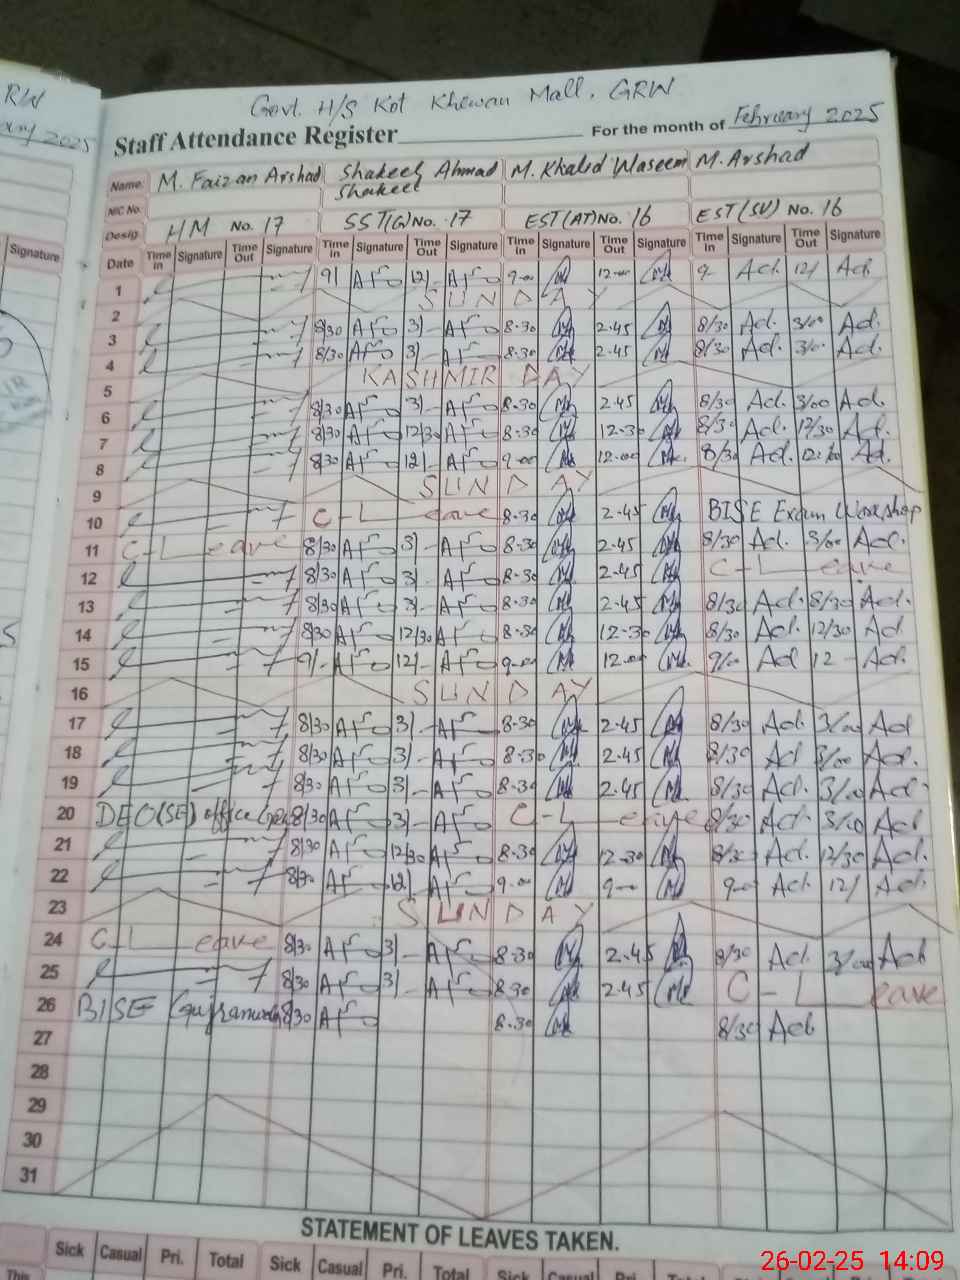 RW
Govt. H/S Kot Khewan Mall, GRW
Staff Attendance Register For the month of February 2025
Name: M. Faizan Arshad Shakeel Ahmad Shakeel M. Khalid Waseem M. Arshad
NIC No.
Desig HM No. 17 SST(G) No. 17 EST(AT) No. 16 EST(SV) No. 16
Signature
Date Time In Signature Time Out Signature Time In Signature Time Out Signature Time In Signature Time Out Signature Time In Signature Time Out Signature
1 9/ 12/- 9-00 12-00 9- 12/
2 SUNDAY
3 8/30 3/- 8-30 2.45 8/30 3/00
4 8/30 3/- 8-30 2.45 8/30 3/0
5 KASHMIR DAY
6 8/30 3/- 8-30 2.45 8/30 3/00
7 8/30 12/30 8-30 12-30 8/30 12/30
8 8/30 12/- 9-00 12-00 8/30
9 SUNDAY
10 C-Leave 8-30 2.45 BISE Exam Workshop
11 C-Leave 8/30 3/- 8-30 2.45 8/30 3/00
12 8/30 3/- 8-30 2.45 C-Leave
13 8/30 3/- 8-30 2.45 8/30 8/30
14 8/30 12/30 8-30 12-30 8/30 12/30
15 9/- 12/- 9-00 12-00 9/00 12-
16 SUNDAY
17 8/30 3/- 8-30 2.45 8/30 3/00
18 8/30 3/- 8-30 2.45 8/30 3/00
19 8/30 3/- 8-30 2.45 8/30 3/00
20 DEO(SE) office 8/30 3/- C-Leave 8/30 3/00
21 8/30 12/30 8-30 12-30 8/30 12/30
22 8/30 12/ 9-00 9-00 9-00 12/
23 SUNDAY
24 C-Leave 8/30 3/- 8-30 2.45 8/30 3/00
25 8/30 3/- 8-30 2.45 C-Leave
26 BISE Gujranwala 8/30 8-30 8/30
27
28
29
30
31
STATEMENT OF LEAVES TAKEN.
Sick Casual Pri. Total Sick Casual Pri. Total Sick Casual Pri. Total Sick Casual Pri. Total
This
26-02-25 14:09